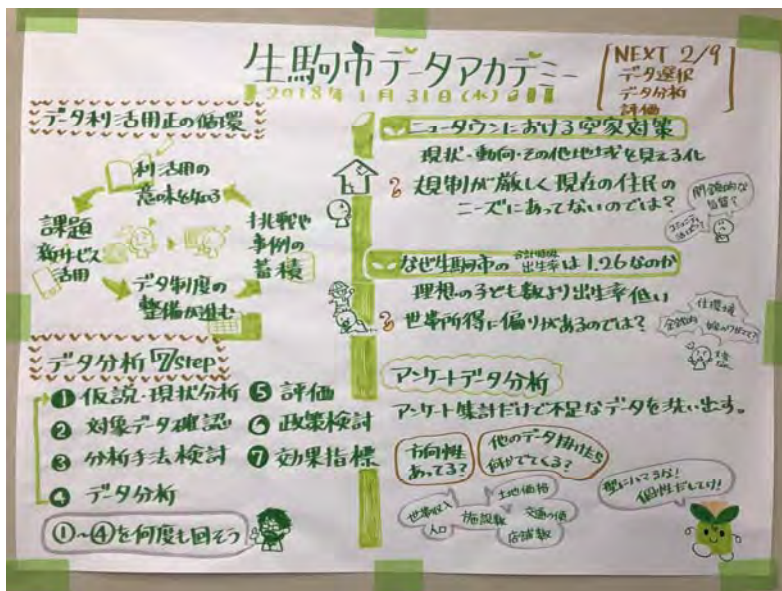 生駒市データアカデミー
2018年1月31日(水)
NEXT 2/9
データ選択
データ分析
評価
データ利活用正の循環
利活用の
意味を知る
挑戦や
事例の
蓄積
データ制度の
整備が進む
課題
新サービス
活用
データ分析 7step
❶ 仮説・現状分析
❷ 対象データ確認
❸ 分析手法検討
❹ データ分析
❺ 評価
❻ 政策検討
❼ 効果指標
①〜④を何度も回そう
ニュータウンにおける空家対策
現状・動向・その他地域を見える化
規制が厳しく現在の住民の
ニーズにあってないのでは?
閉鎖的な
コミュニティ
なぜ生駒市の合計特殊出生率は1.26なのか
理想の子ども数より出生率低い
世帯所得に偏りがあるのでは?
住環境
金銭的
アンケートデータ分析
アンケート集計だけで不足なデータを洗い出す。
方向性
あってる?
他のデータ掛けたら
何がでてくる?
世帯収入
人口
施設数
土地価格
交通の便
店舗数
型にハマるな!
個性だしてけ!